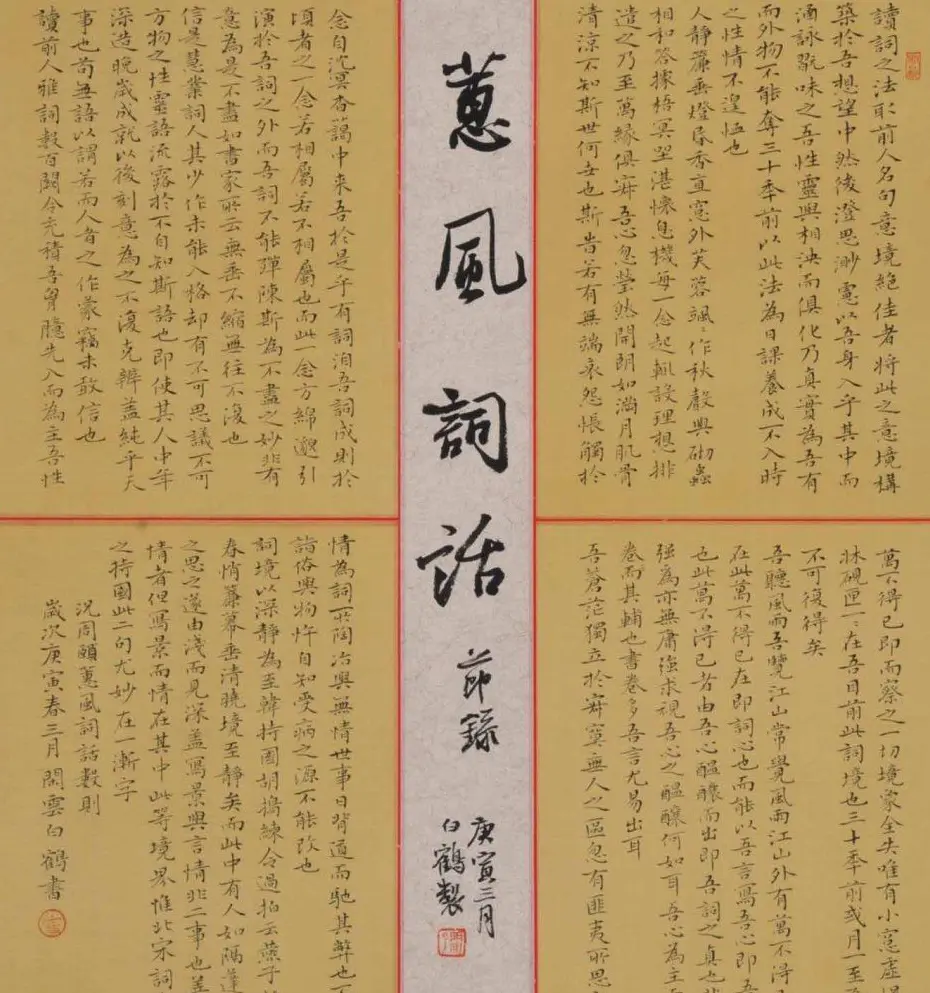 蕙風詞話 節錄
庚寅三月
白鶴製
讀詞之法取前人名句意境絕佳者將此之意境構
築於吾想望中然後澄思渺慮以吾身入乎其中而
涵詠翫味之吾性靈與相浹而俱化乃真實為吾有
而外物不能奪三十季前以此法為日課養成不入時
之性情不遑恤也
人静簾垂燈昏香直窓外芙蓉颯〻作秋聲與砌蟲
相和答據梧冥坐湛懷息機每一念起輒設理想排
遣之乃至萬緣俱寂吾心忽瑩然開朗如滿月肌骨
清涼不知斯世何世也斯昔若有無端哀怨悵觸於
萬不得已即而察之一切境象全失唯有小窓虛幌
牀硯匣一〻在吾目前此詞境也三十季前或月一至
不可復得矣
吾聽風雨吾覽江山常覺風雨江山外有萬不得
在此萬不得已者即詞心也而能以吾言寫吾心即吾
也此萬不得已者由吾心醖釀而出即吾詞之真也
强為亦無庸强求視吾心之醖釀何如耳吾心為主
卷而其輔也書卷多吾言尤易出耳
吾蒼茫獨立於寂寞無人之區忽有匪夷所思
念自沈冥杳藹中来吾於是乎有詞洎吾詞成則於
頃者之一念若相屬若不相屬也而此一念方綿邈引
演於吾詞之外而吾詞不能殫陳斯為不盡之妙非有
意為是不盡如書家所云無垂不縮無往不復也
信是慧業詞人其少作未能入格却有不可思議不可
方物之性靈語流露於不自知斯語也即使其人中年
深造晚歲成就以後刻意為之不復克辦蓋純乎天
事也苟無語以謂若而人者之作蒙竊未敢信也
讀前人雅詞數百闋令充積吾胷臆先入而為主吾性
情為詞所陶冶與無情世事日背道而馳其弊也
詣俗與物忤自知受病之源不能改也
詞境以深靜為至韓持國胡搗練令過拍云燕子
春悄簾幕垂清曉境至靜矣而此中有人如隔蓬
之思之遂由淺而見深蓋寫景與言情非二事也善
情者但寫景而情在其中此等境界惟北宋詞
之持國此二句尤妙在一漸字
況周頤蕙風詞話數則
歲次庚寅春三月閑雲白鶴書